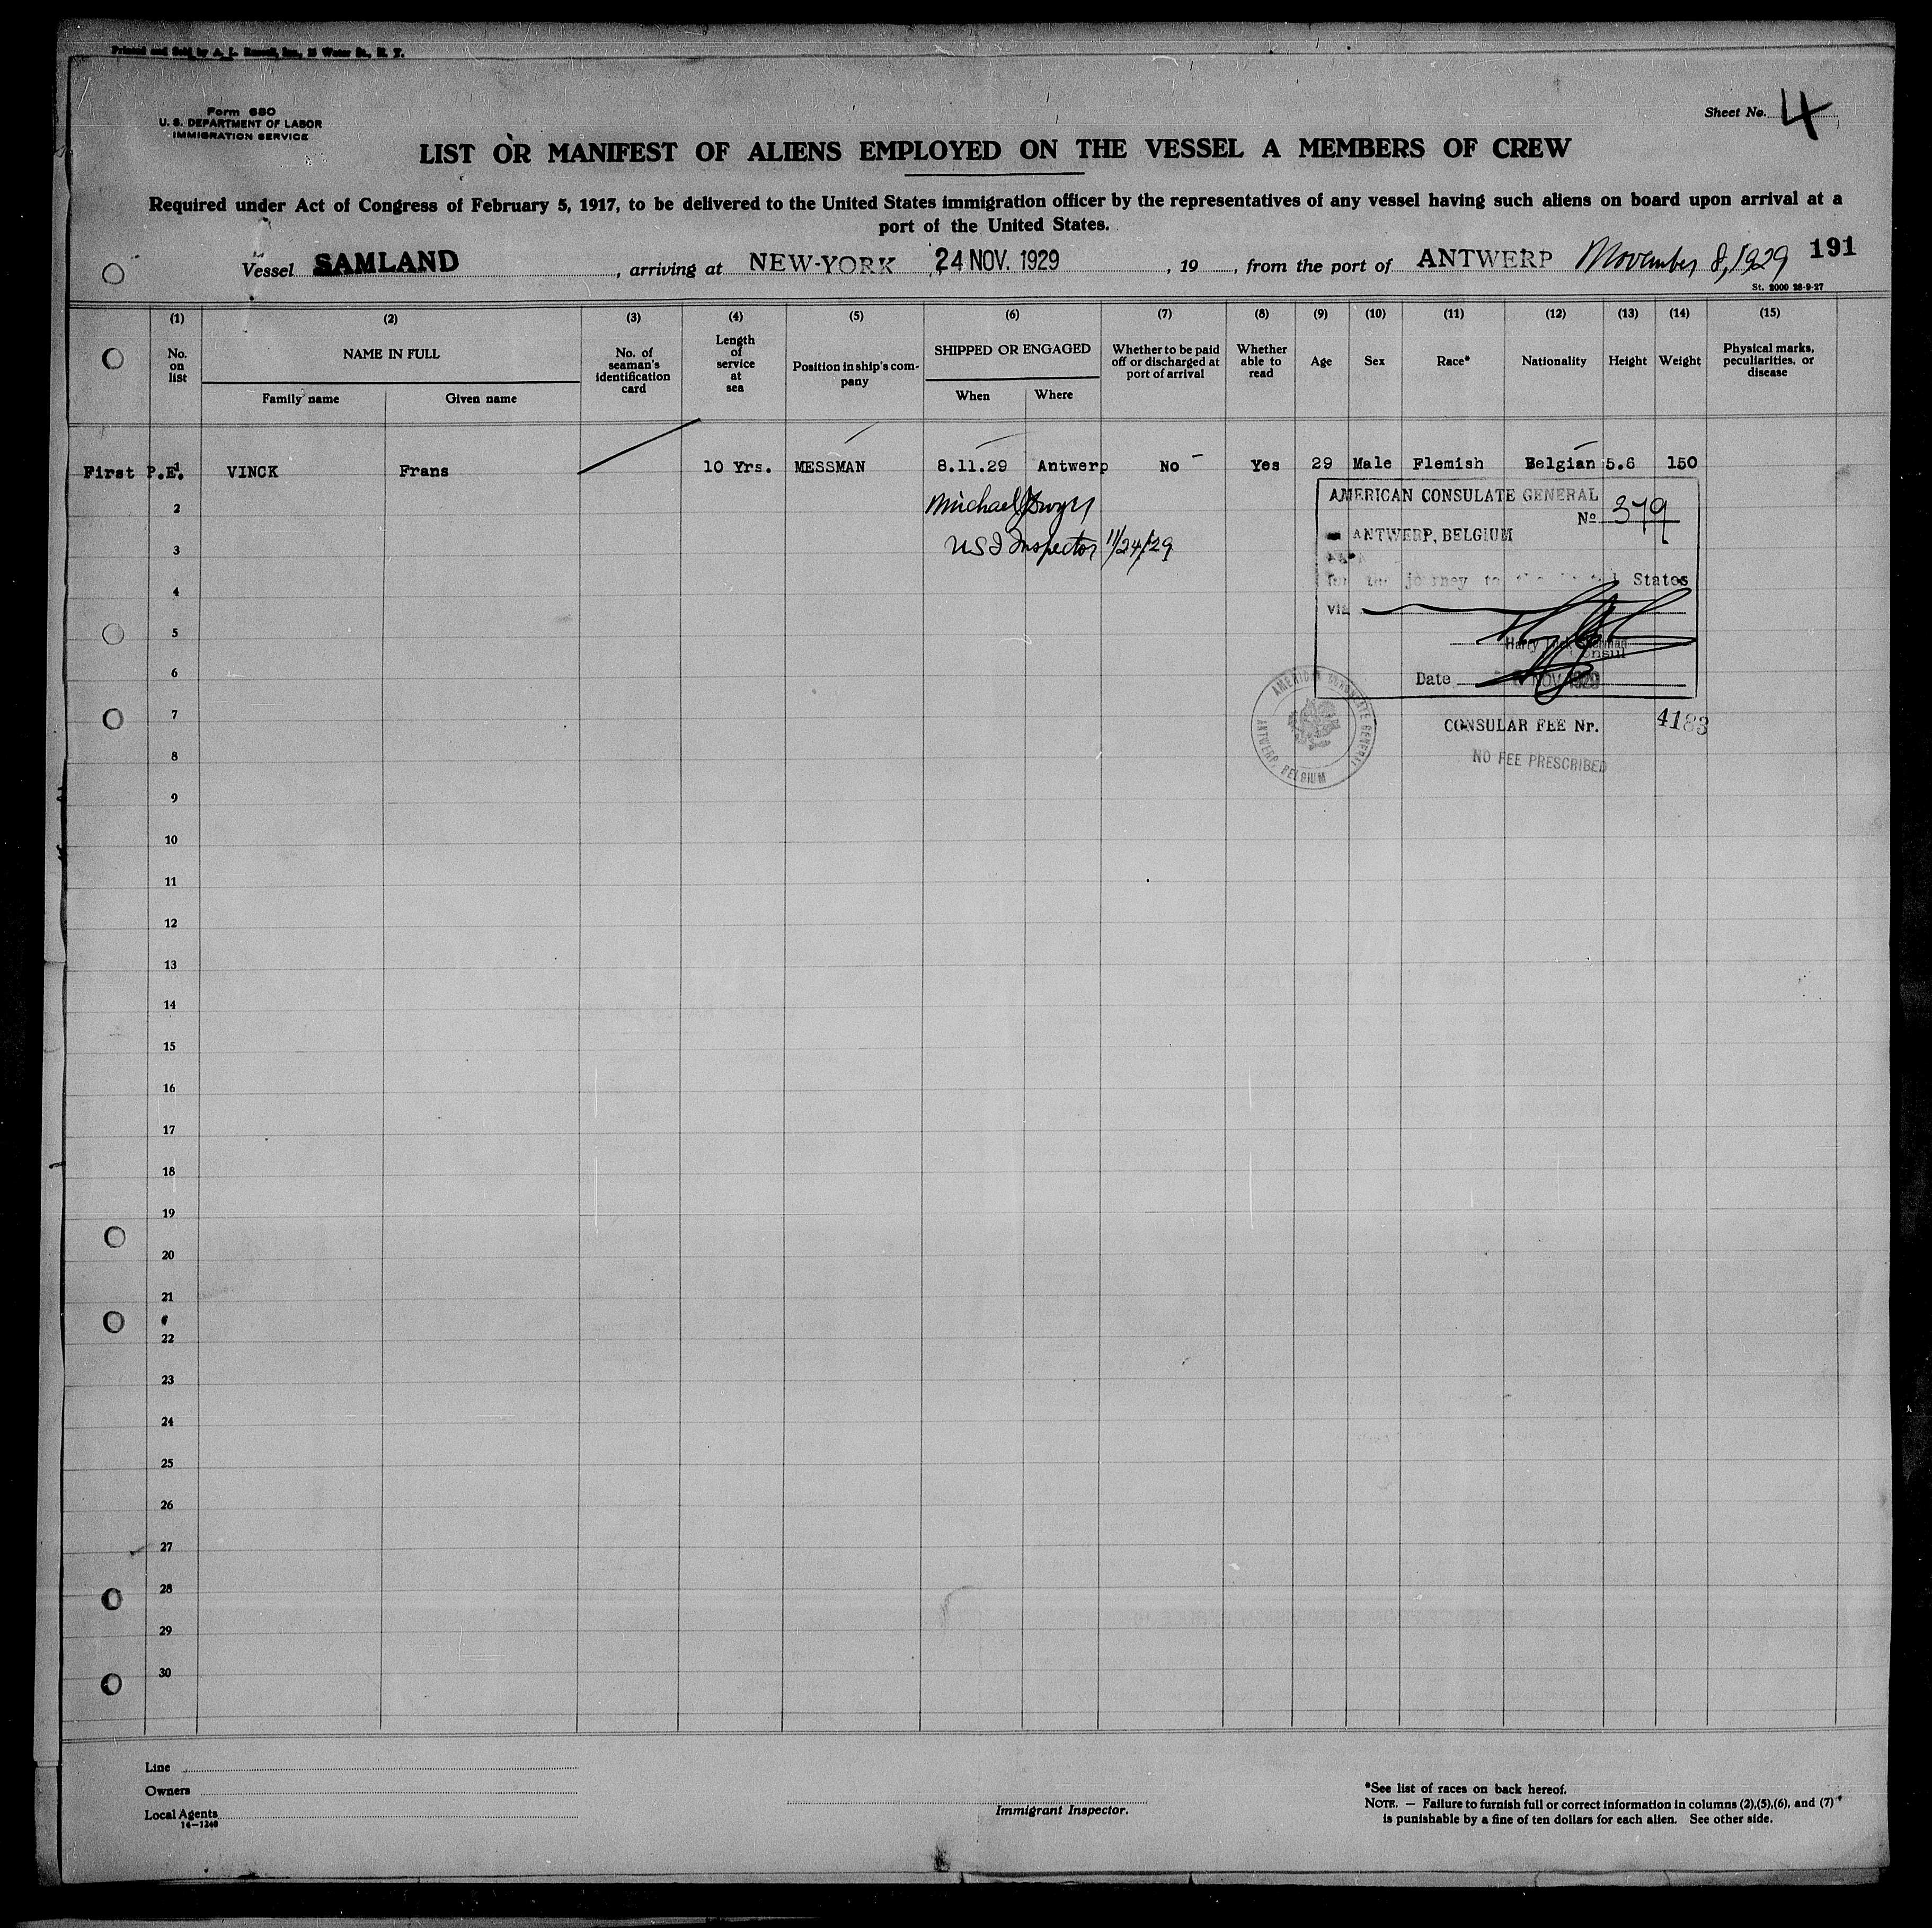 Printed and Sold by A. L. Russell, Inc., 15 Water St., N. Y.
Form 680
U. S. DEPARTMENT OF LABOR
IMMIGRATION SERVICE
Sheet No. 4
LIST OR MANIFEST OF ALIENS EMPLOYED ON THE VESSEL A MEMBERS OF CREW
Required under Act of Congress of February 5, 1917, to be delivered to the United States immigration officer by the representatives of any vessel having such aliens on board upon arrival at a
port of the United States.
Vessel SAMLAND, arriving at NEW-YORK 24 NOV. 1929, 19, from the port of ANTWERP November 8, 1929 191
St. 2000 28-9-27
(1) (2) (3) (4) (5) (6) (7) (8) (9) (10) (11) (12) (13) (14) (15)
No. on list
NAME IN FULL
Family name
Given name
No. of seaman's identification card
Length of service at sea
Position in ship's company
SHIPPED OR ENGAGED
When
Where
Whether to be paid off or discharged at port of arrival
Whether able to read
Age
Sex
Race*
Nationality
Height
Weight
Physical marks, peculiarities, or disease
First P.E. 1 VINCK Frans 10 Yrs. MESSMAN 8.11.29 Antwerp No Yes 29 Male Flemish Belgian 5.6 150
2 Michael
3 US I Inspector 11/24/29
AMERICAN CONSULATE GENERAL
No 379
ANTWERP, BELGIUM
for the journey to the States
via
Harry
Consul
Date NOV 1929
AMERICAN CONSULATE GENERAL
ANTWERP, BELGIUM
CONSULAR FEE Nr. 4183
NO FEE PRESCRIBED
4
5
6
7
8
9
10
11
12
13
14
15
16
17
18
19
20
21
22
23
24
25
26
27
28
29
30
Line
Owners
Local Agents
14-1240
Immigrant Inspector.
*See list of races on back hereof.
NOTE. — Failure to furnish full or correct information in columns (2),(5),(6), and (7)
is punishable by a fine of ten dollars for each alien. See other side.